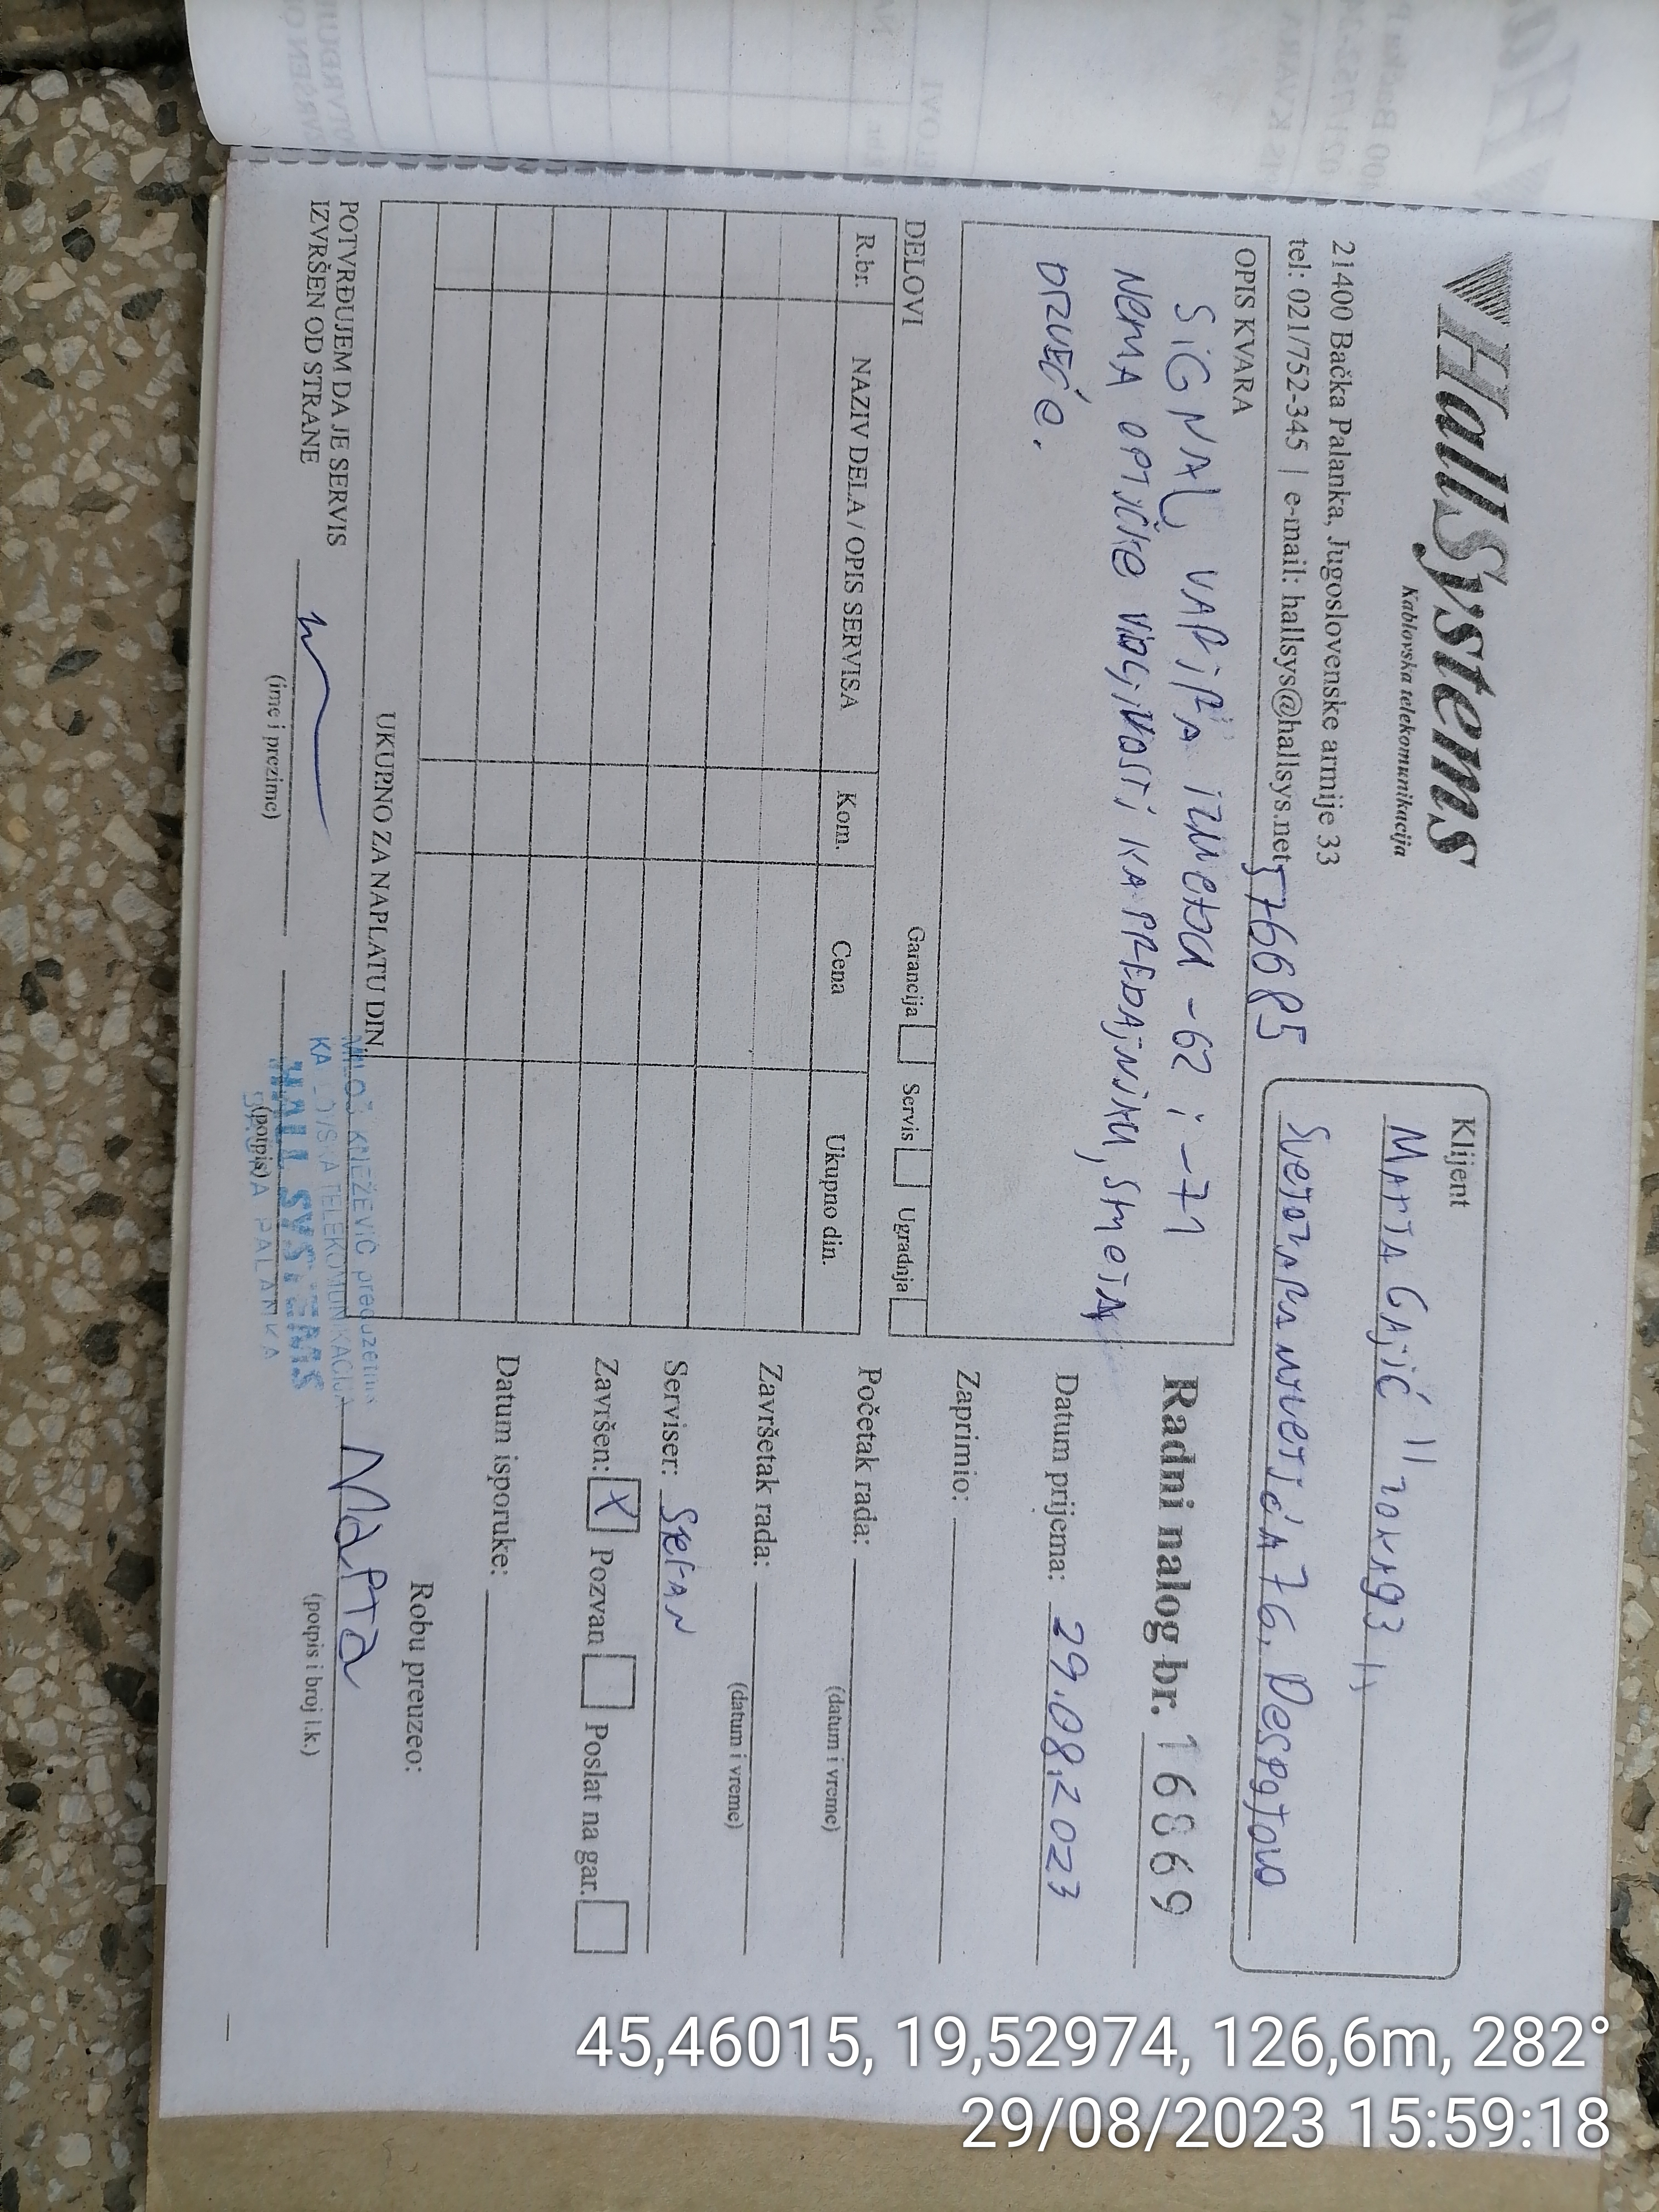 HallSystems
Kablovska telekomunikacija
21400 Bačka Palanka, Jugoslovenske armije 33
tel: 021/752-345 | e-mail: hallsys@hallsys.net
576685
Klijent
MARTA GAJIĆ
76, Despotovo
OPIS KVARA
SIGNAL VARIRA IZMEĐU -62 i -71
NEMA OPTIČKE VIDLJIVOSTI KA PREDAJNIKU, SMETA
DRVEĆE.
Radni nalog br. 16869
Datum prijema: 29.08.2023
Zaprimio:
Početak rada:
(datum i vreme)
Završetak rada:
(datum i vreme)
Serviser: STEFAN
Završen: X Pozvan Poslat na gar.
Datum isporuke:
Robu preuzeo:
Marta
(potpis i broj l.k.)
DELOVI
Garancija Servis Ugradnja
R.br. NAZIV DELA / OPIS SERVISA Kom. Cena Ukupno din.
UKUPNO ZA NAPLATU DIN.
POTVRĐUJEM DA JE SERVIS
IZVRŠEN OD STRANE
(ime i prezime)
(potpis)
MILOŠ KNEŽEVIĆ preduzetnik
TELEKOMUNIKACIJA
HALL SYSTEMS
PALANKA
45,46015, 19,52974, 126,6m, 282°
29/08/2023 15:59:18